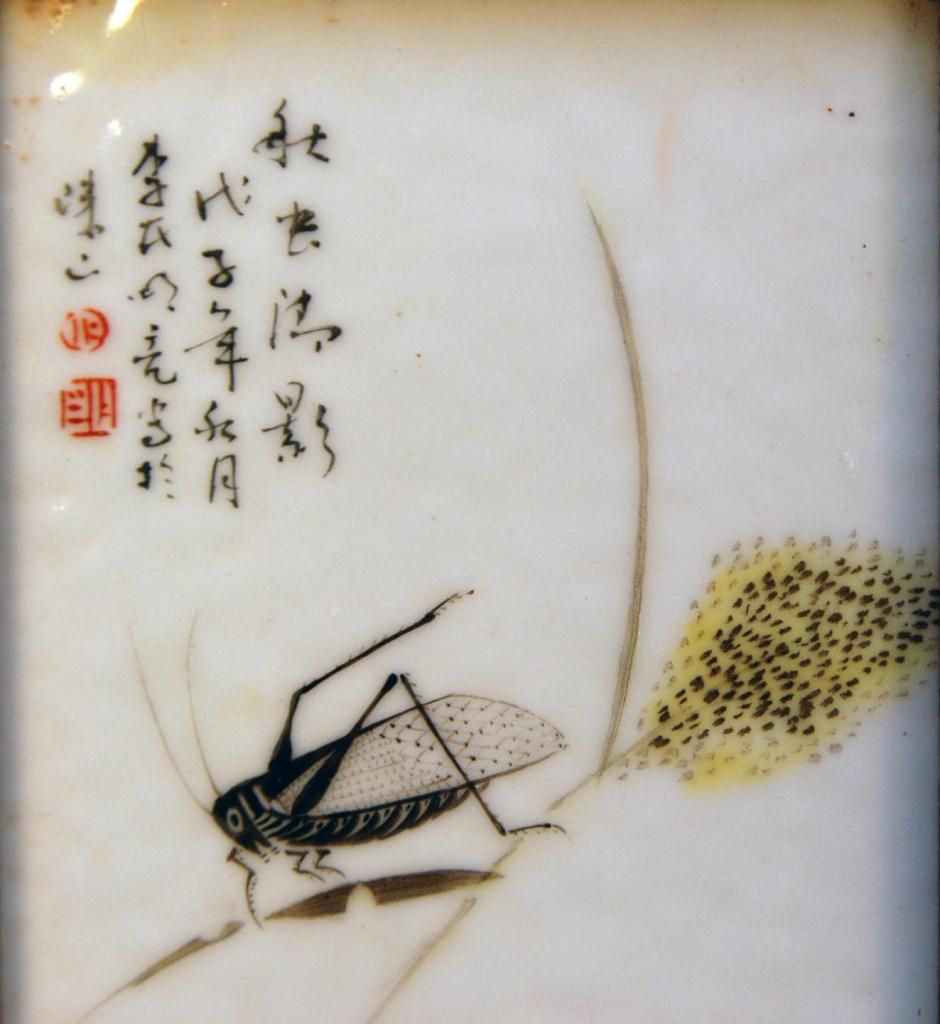 秋虫清影
戊子年秋月
李氏明亮写於
珠山